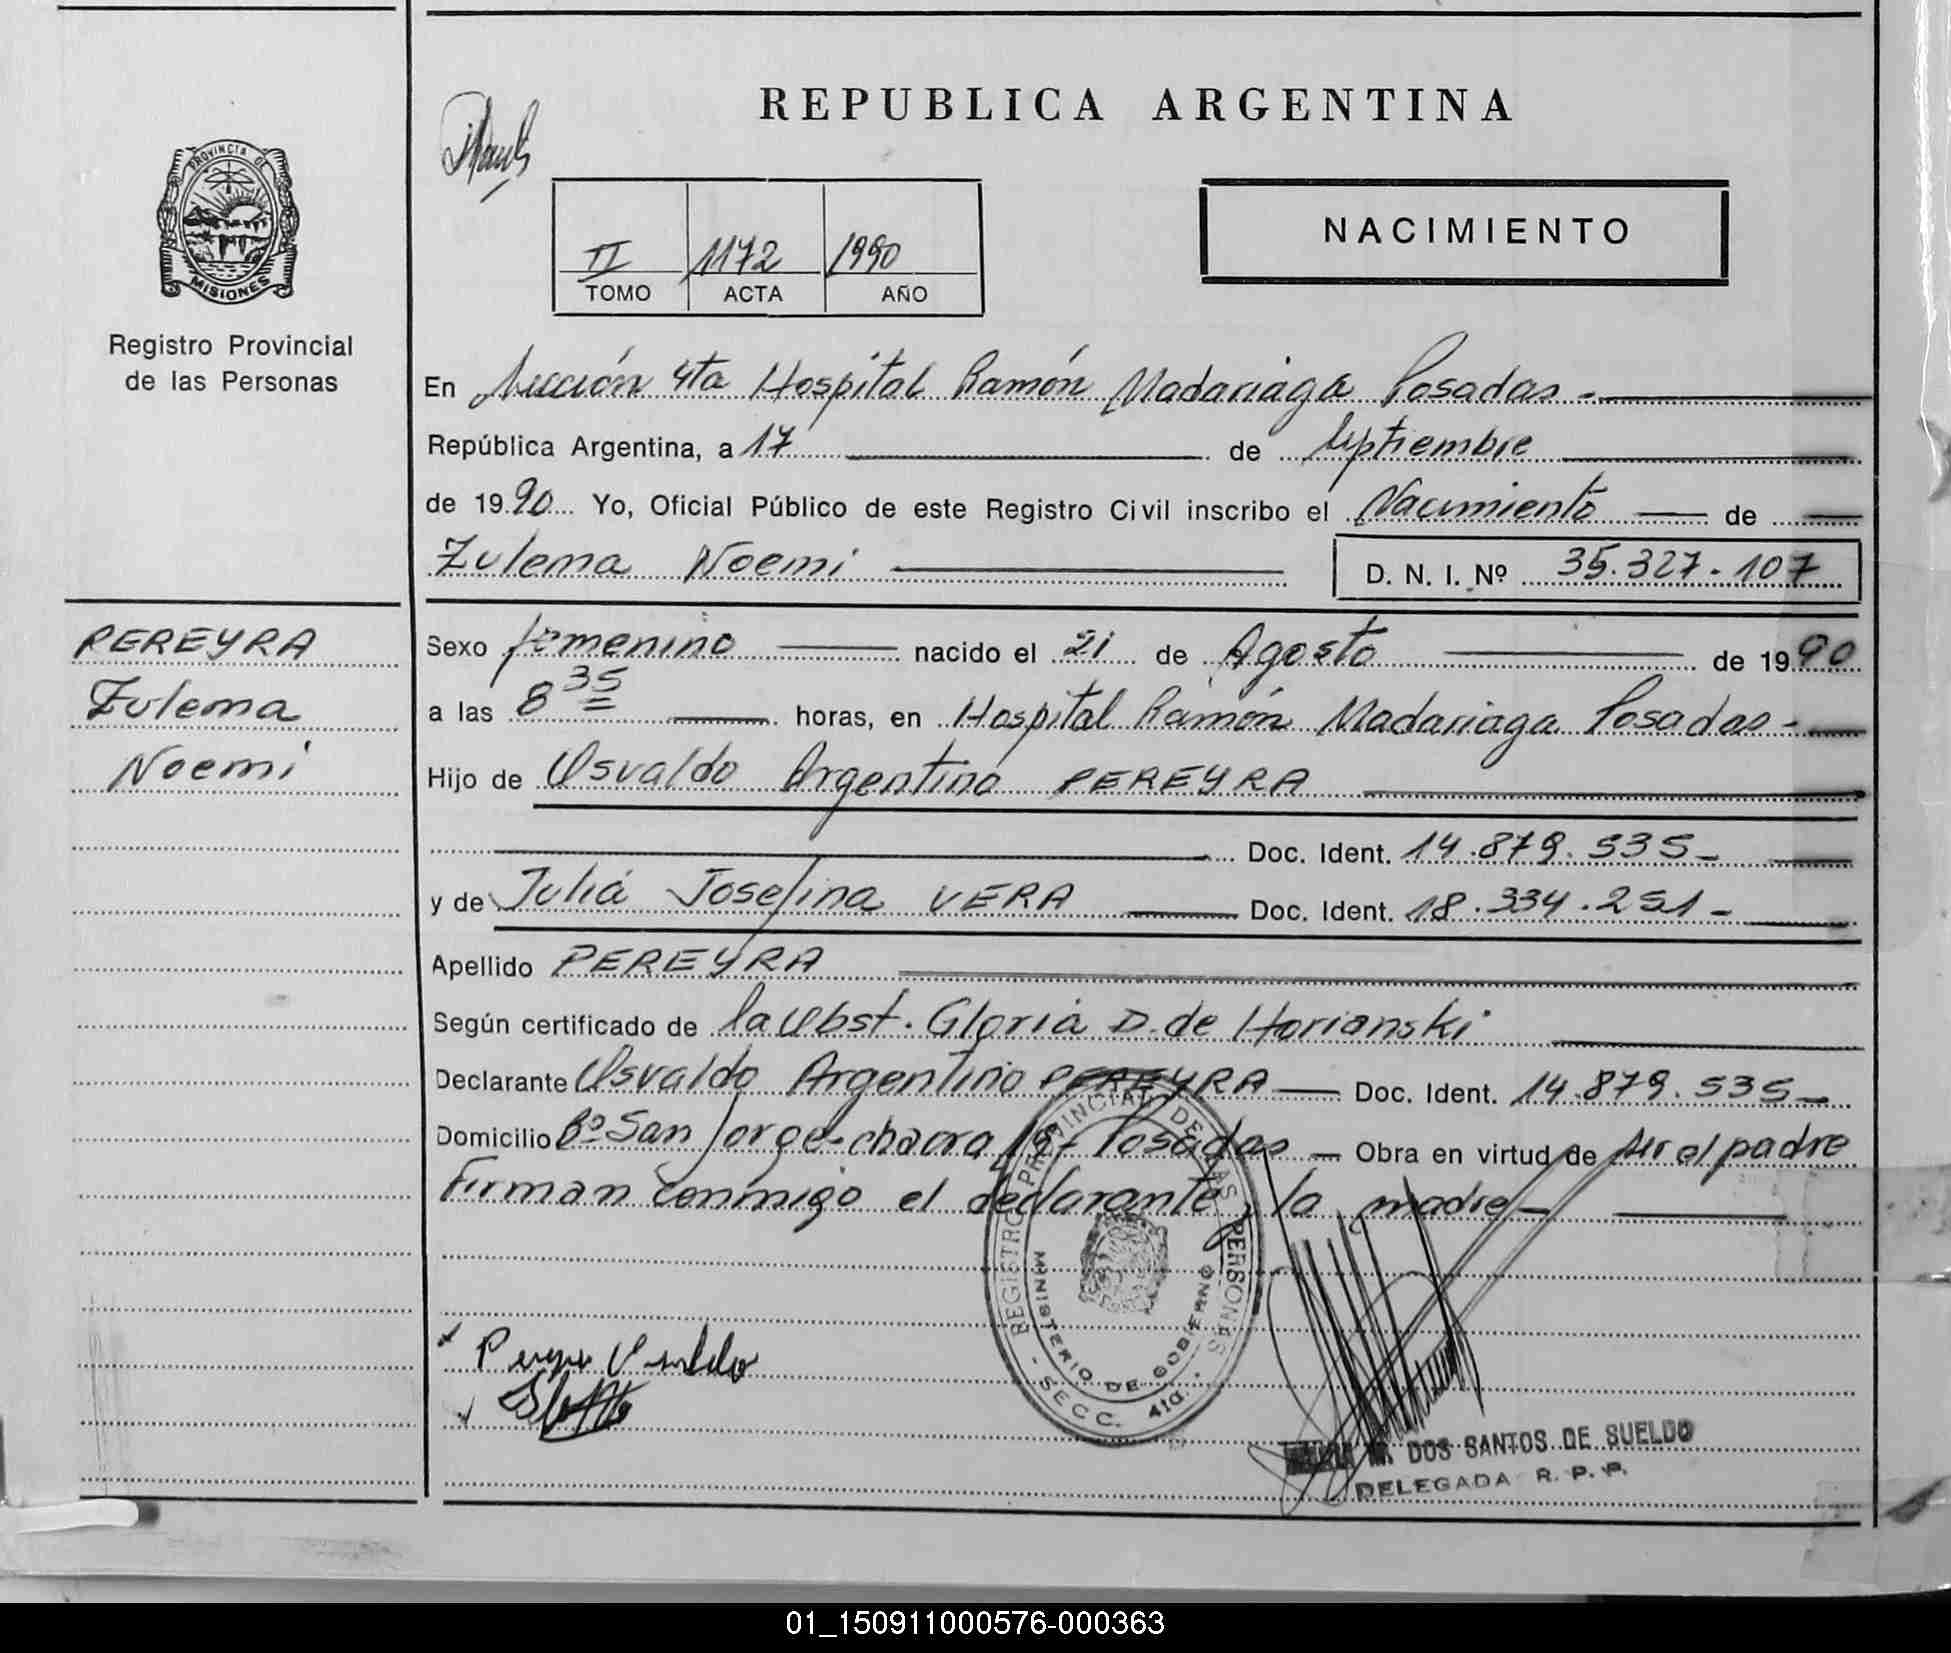 REPUBLICA ARGENTINA
PROVINCIA DE
MISIONES
Registro Provincial
de las Personas
NACIMIENTO
II 1172 1990
TOMO ACTA AÑO
En Sección 4ta Hospital Ramón Madariaga Posadas -
República Argentina, a 17 de Septiembre
de 1990 Yo, Oficial Público de este Registro Civil inscribo el Nacimiento de
Zulema Noemi D. N. I. Nº 35.327.107
PEREYRA
Zulema
Noemi
Sexo femenino nacido el 21 de Agosto de 1990
a las 8 35 horas, en Hospital Ramón Madariaga Posadas -
Hijo de Osvaldo Argentino PEREYRA
Doc. Ident. 14.879.535 -
y de Julia Josefina VERA Doc. Ident. 18.334.251 -
Apellido PEREYRA
Según certificado de la Obst. Gloria D. de Horianski
Declarante Osvaldo Argentino PEREYRA Doc. Ident. 14.879.535 -
Domicilio Bº San Jorge - chacra 19 - Posadas - Obra en virtud de ser el padre
Firman conmigo el declarante y la madre -
REGISTRO PROVINCIAL DE LAS PERSONAS - SECC. 4ta. -
MINISTERIO DE GOBIERNO
M. DOS SANTOS DE SUELDO
DELEGADA R. P. P.
01_150911000576-000363